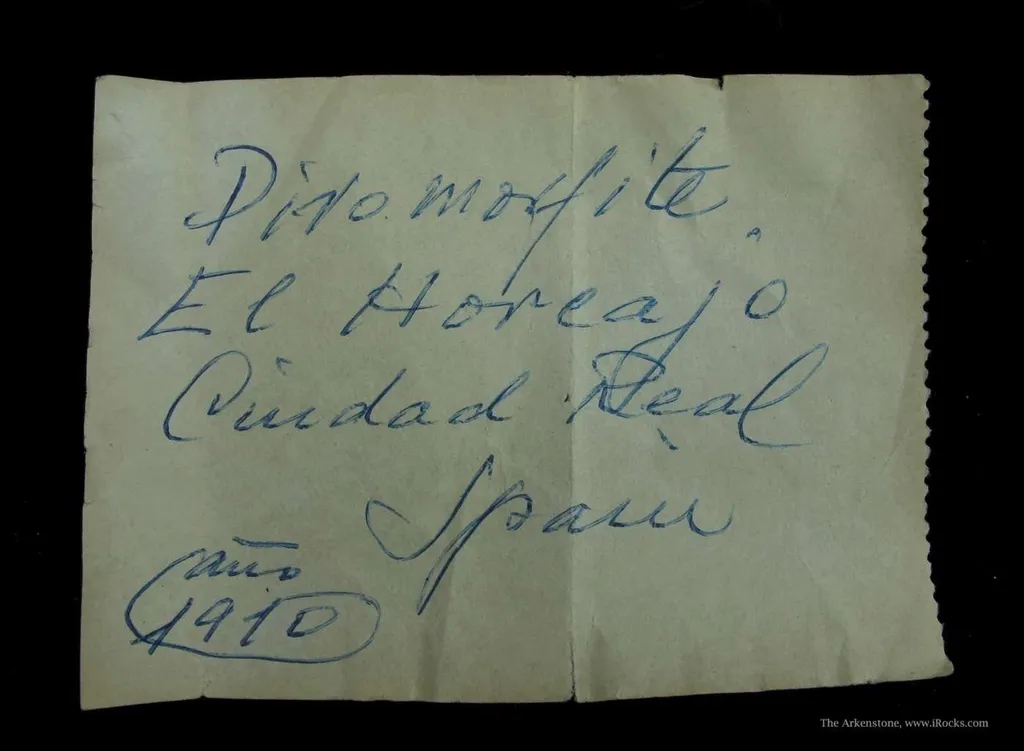 Piromorfite
El Horcajo
Ciudad Real
Spain
año
1910
The Arkenstone, www.iRocks.com